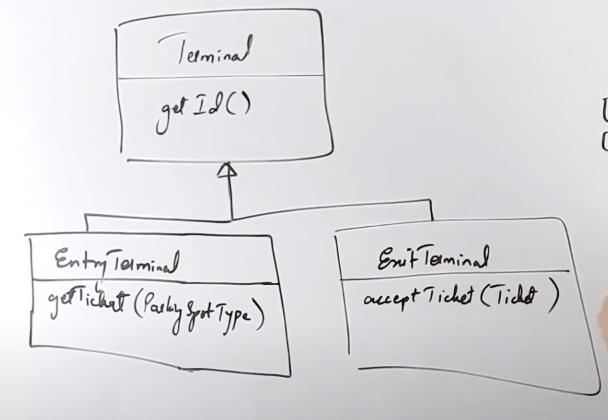 Terminal
getId()
EntryTerminal
getTicket(ParkingSpotType)
ExitTerminal
acceptTicket(Ticket)